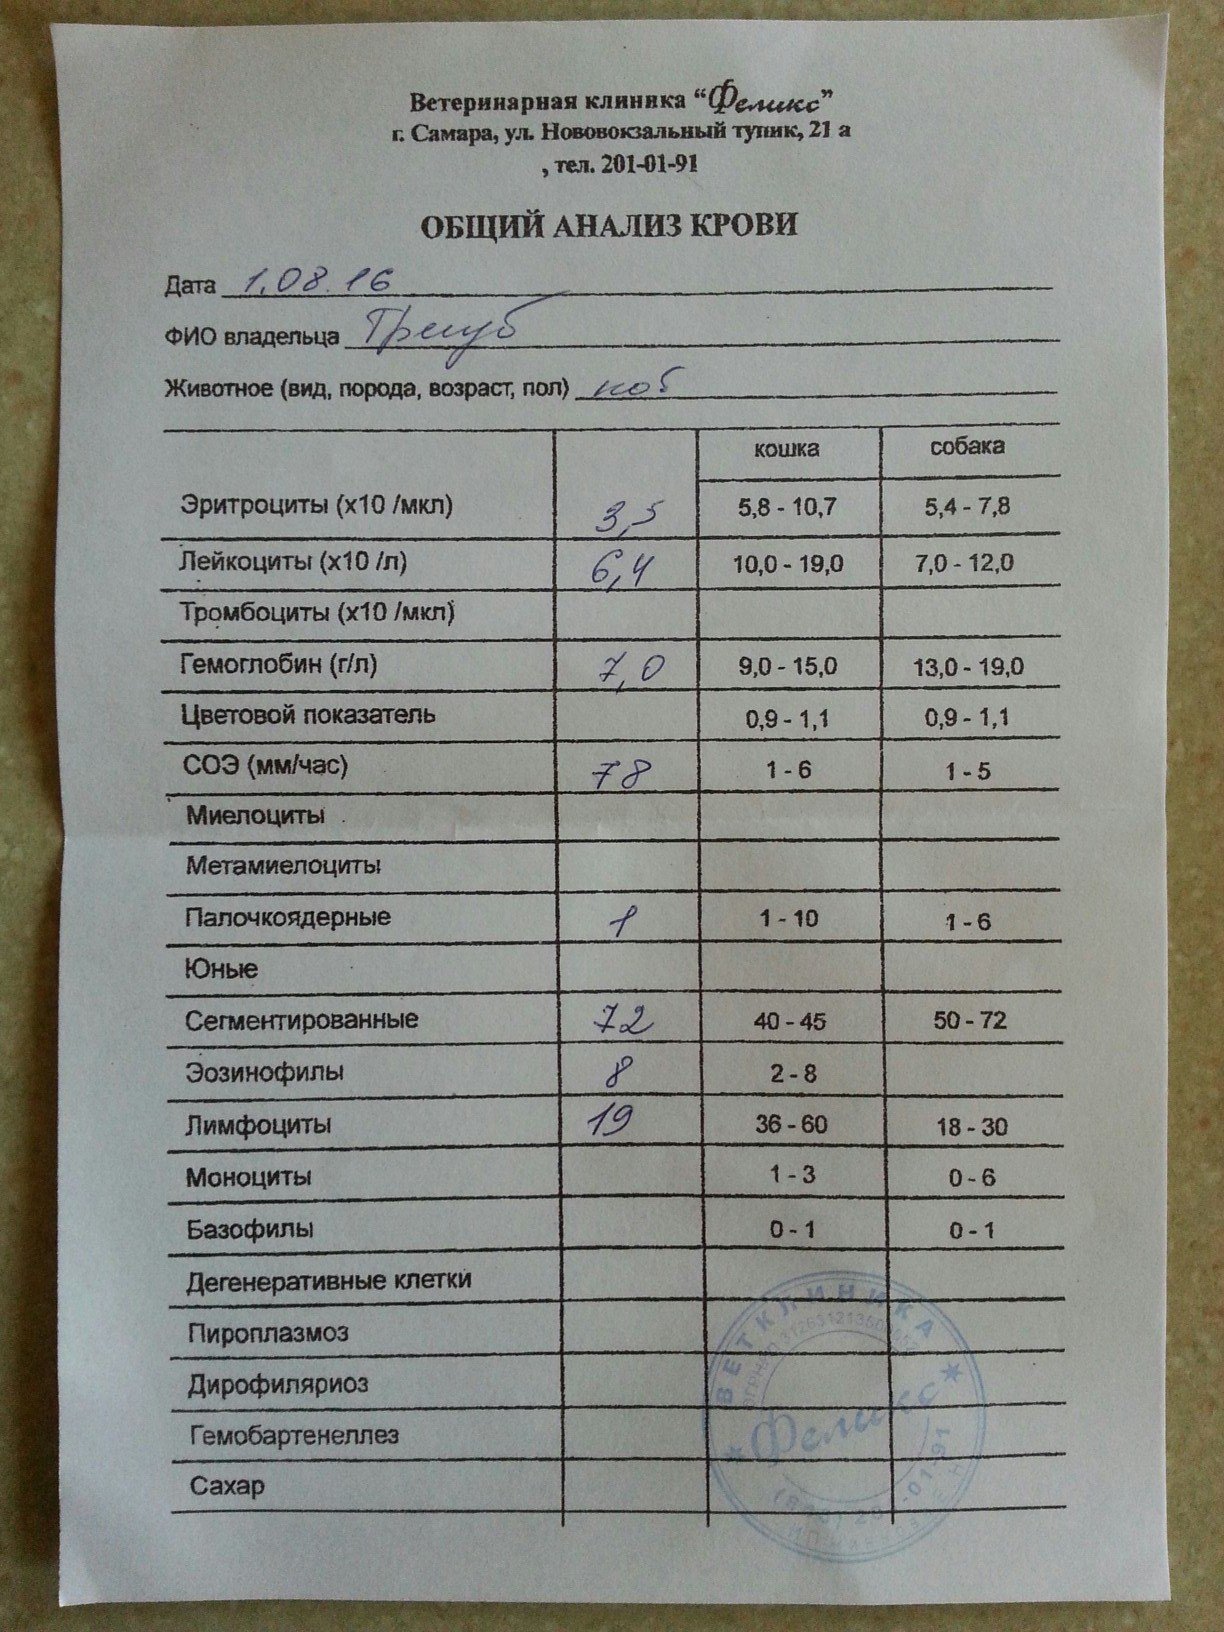 Ветеринарная клиника “Феликс”
г. Самара, ул. Нововокзальный тупик, 21 а
, тел. 201-01-91
ОБЩИЙ АНАЛИЗ КРОВИ
Дата 1.08.16
ФИО владельца
Животное (вид, порода, возраст, пол)
кошка собака
Эритроциты (х10 /мкл) 3,5 5,8 - 10,7 5,4 - 7,8
Лейкоциты (х10 /л) 6,4 10,0 - 19,0 7,0 - 12,0
Тромбоциты (х10 /мкл)
Гемоглобин (г/л) 7,0 9,0 - 15,0 13,0 - 19,0
Цветовой показатель 0,9 - 1,1 0,9 - 1,1
СОЭ (мм/час) 78 1 - 6 1 - 5
Миелоциты
Метамиелоциты
Палочкоядерные 1 1 - 10 1 - 6
Юные
Сегментированные 72 40 - 45 50 - 72
Эозинофилы 8 2 - 8
Лимфоциты 19 36 - 60 18 - 30
Моноциты 1 - 3 0 - 6
Базофилы 0 - 1 0 - 1
Дегенеративные клетки
Пироплазмоз
Дирофиляриоз
Гемобартенеллез
Сахар
ВЕТКЛИНИКА
Феликс